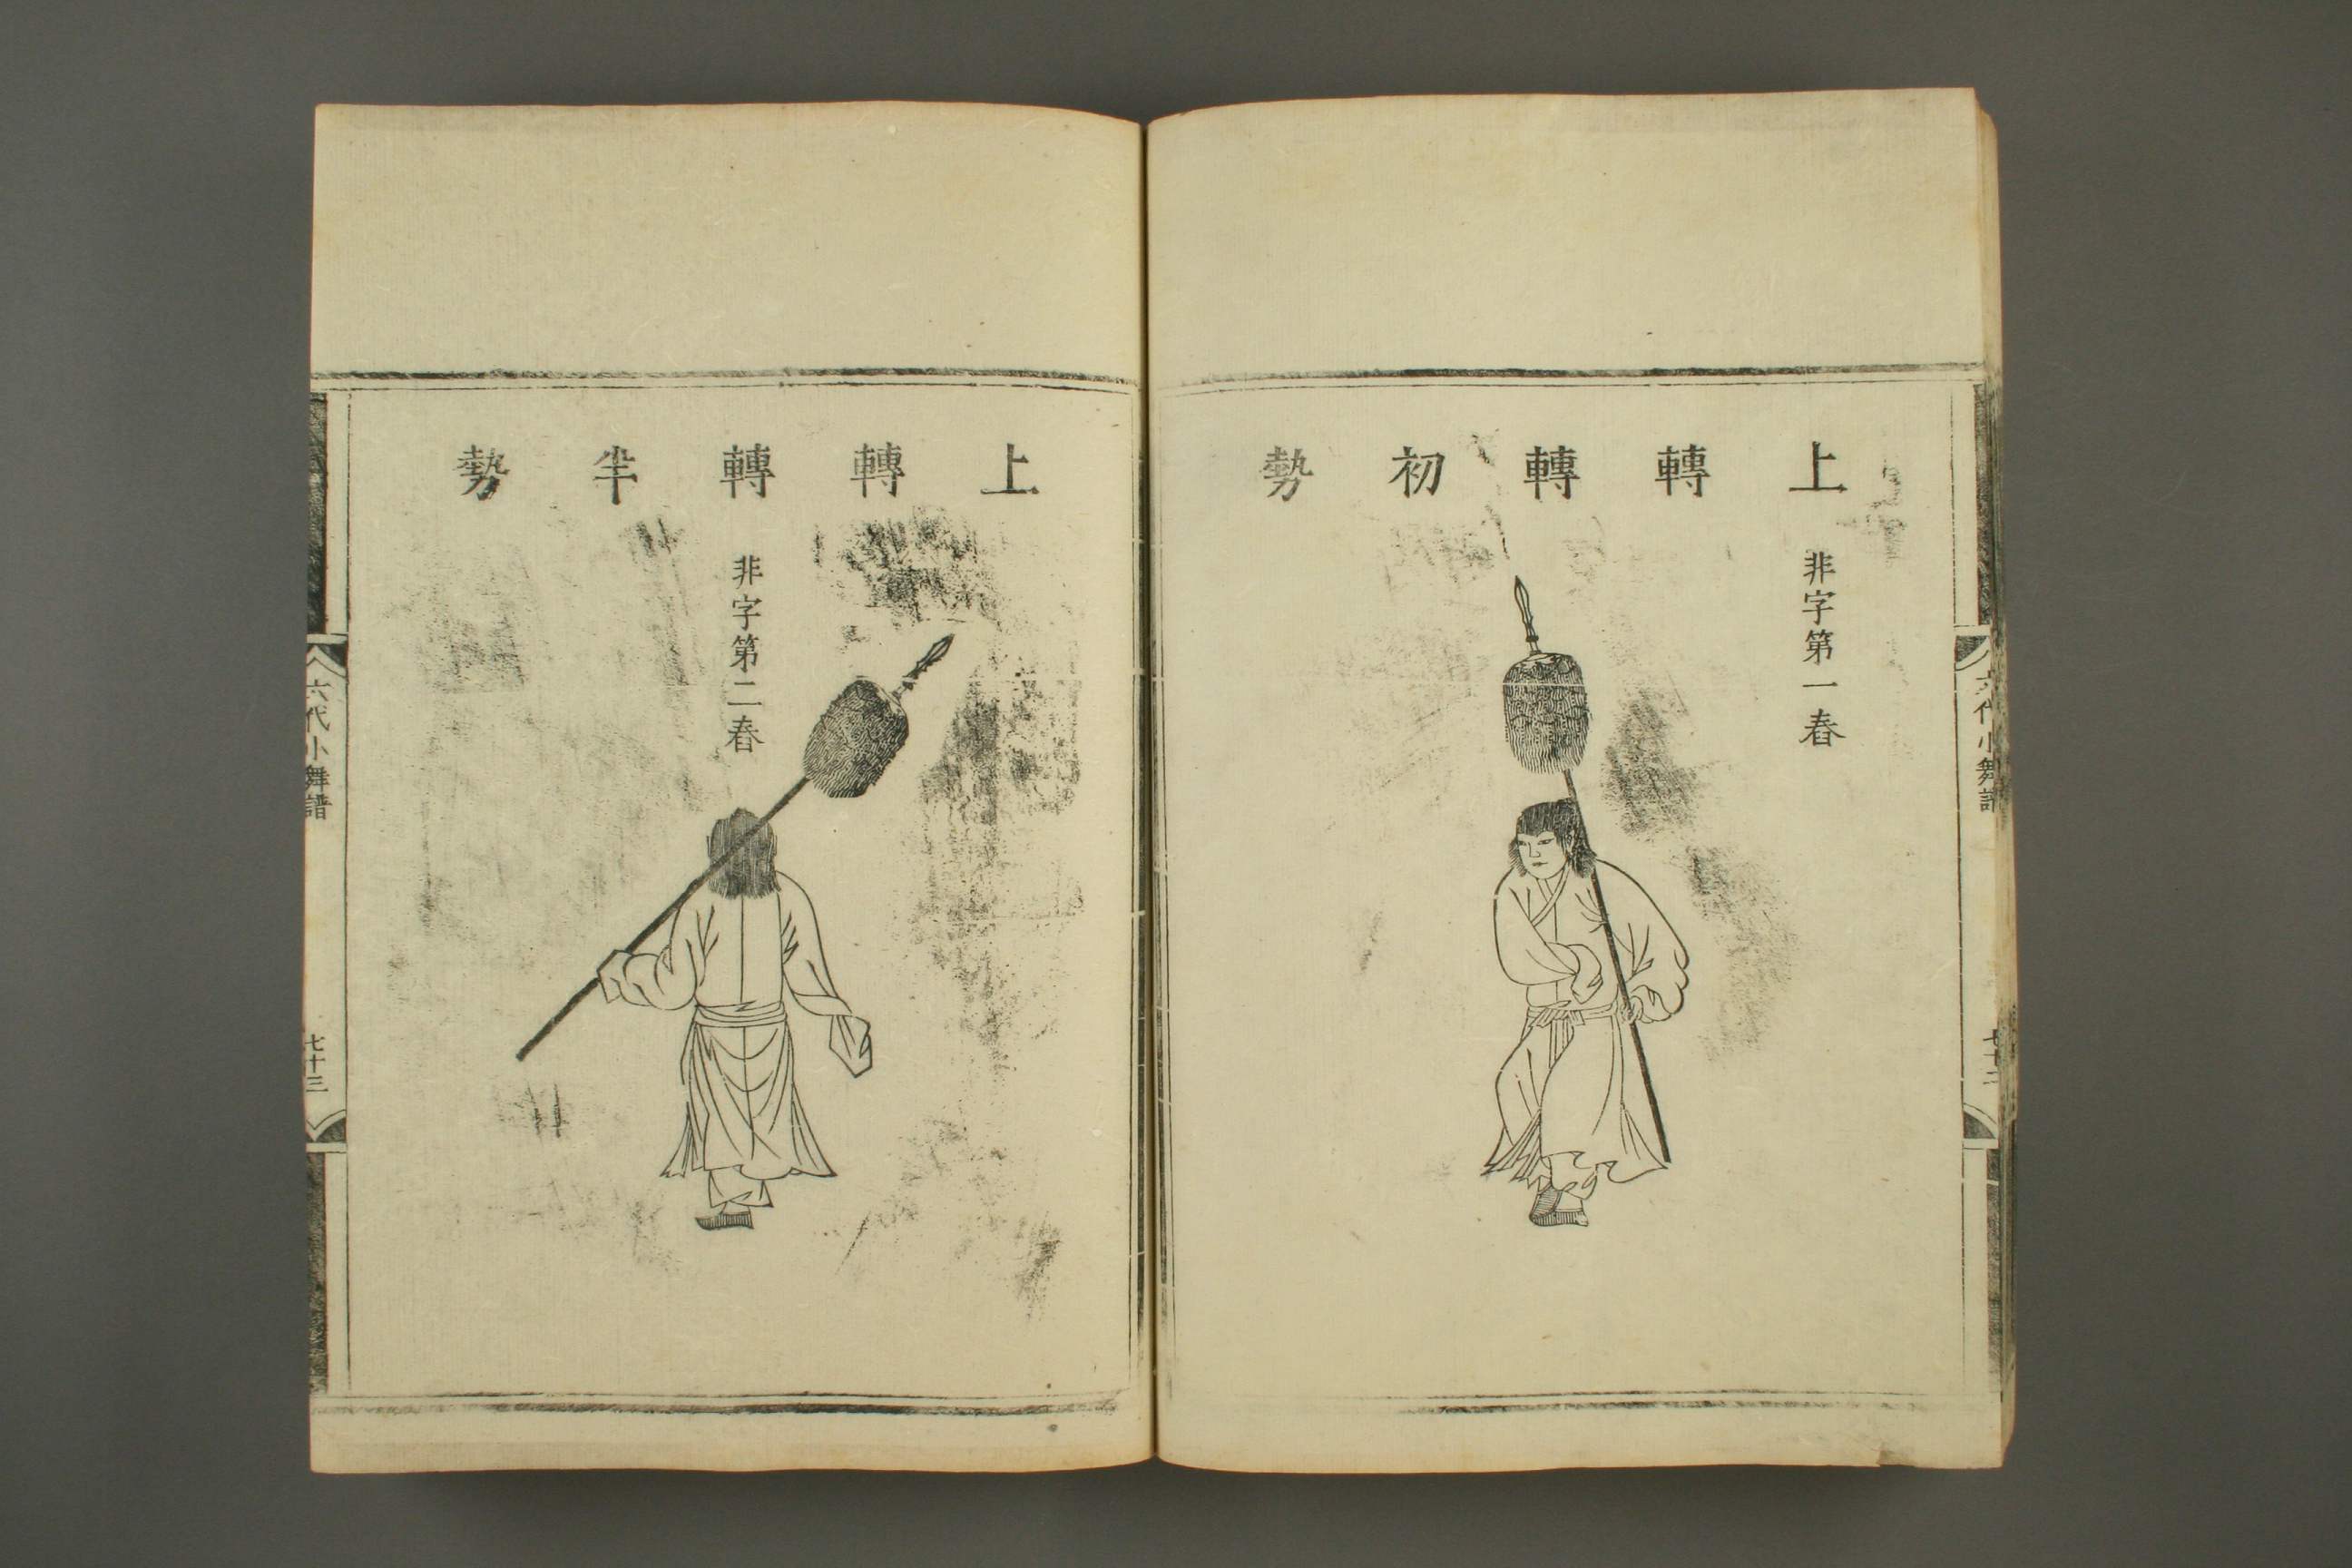 上轉轉初勢
非字第一舂
六代小舞譜
上轉轉半勢
非字第二舂
六代小舞譜
七十三